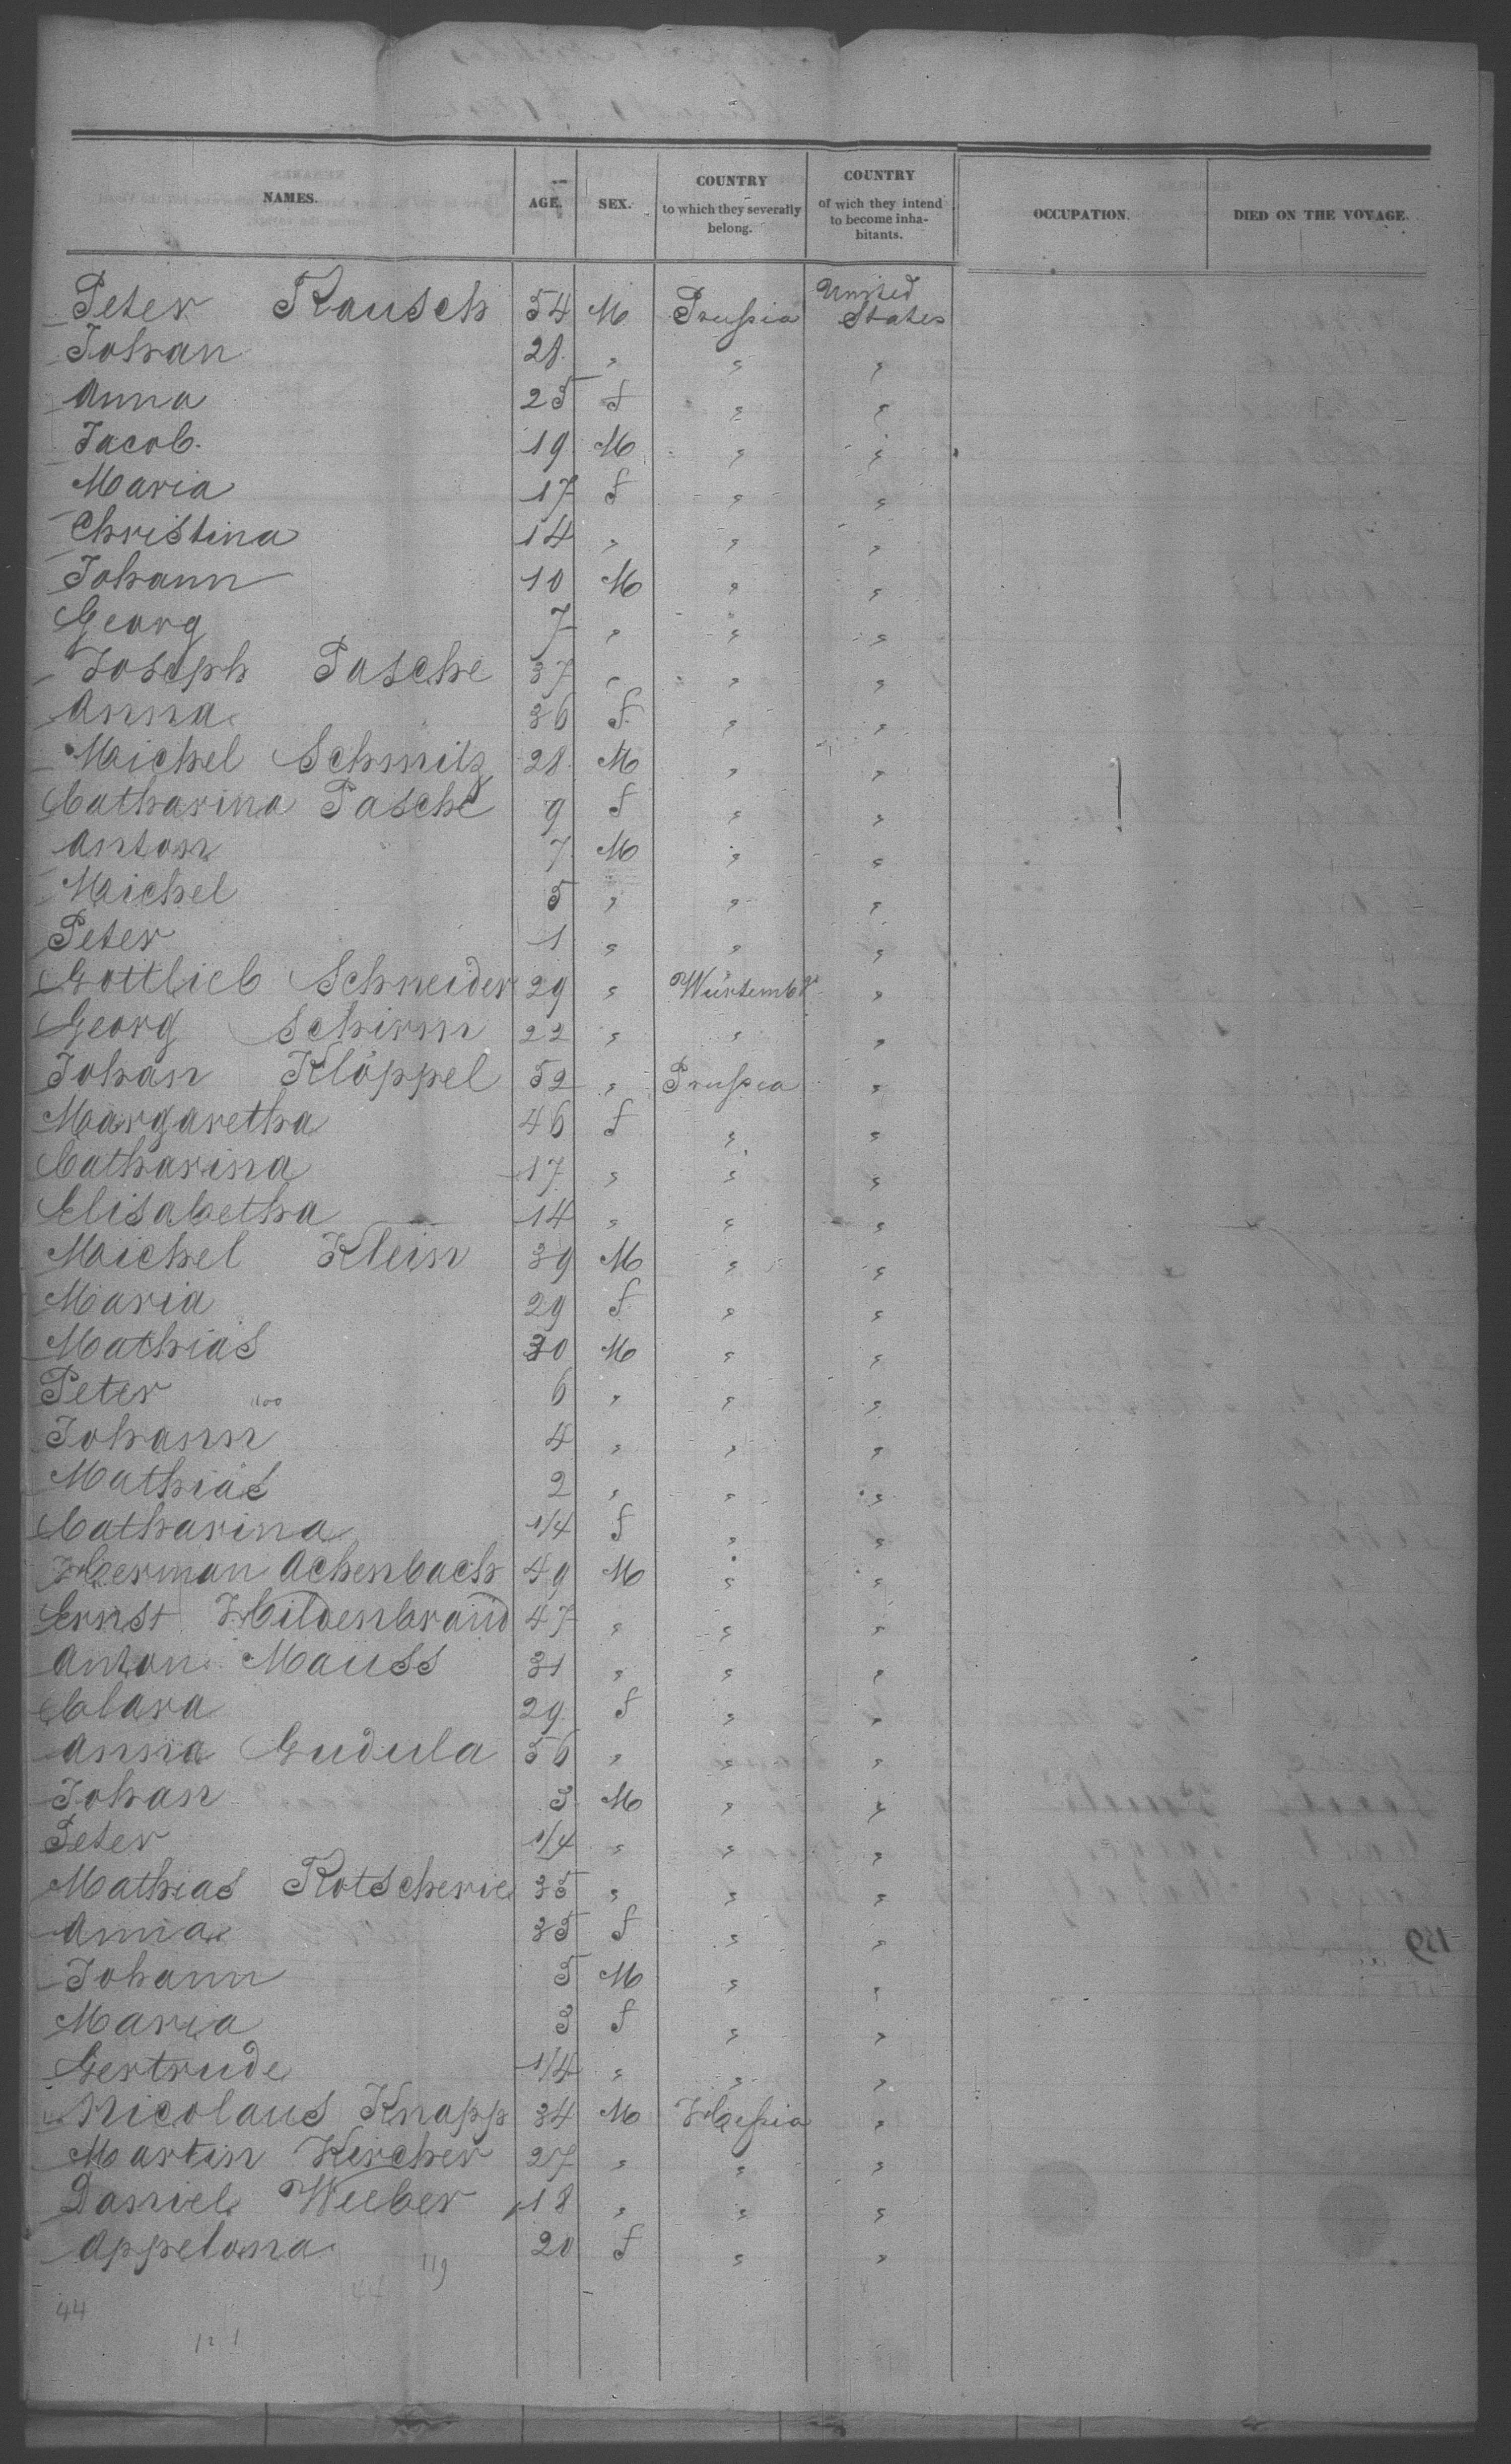 NAMES. AGE. SEX. COUNTRY to which they severally belong. COUNTRY of wich they intend to become inhabitants. OCCUPATION. DIED ON THE VOYAGE.
Peter Rausch 54 M Prussia United States
Johan 28 " " "
Anna 25 f " "
Jacob. 19 M " "
Maria 17 f " "
Christina 14 " " "
Johann 10 M " "
Georg 7 " " "
Joseph Pasche 37 " " "
Anna 36 f " "
Michel Schmitz 28 M " "
Catharina Pasche 9 f " "
Anton 7 M " "
Michel 5 " " "
Peter 1 " " "
Gottlieb Schneider 29 " Würtembg "
Georg Schirm 22 " " "
Johan Klöppel 52 " Prussia "
Margaretha 46 f " "
Catharina 17 " " "
Elisabetha 14 " " "
Michel Klein 39 M " "
Maria 29 f " "
Mathias 30 M " "
Peter 100 6 " " "
Johann 4 " " "
Mathias 2 " " "
Catharina 1/4 f " "
Herman Achenbach 49 M " "
Ernst Hildenbrand 47 " " "
Anton Mauss 31 " " "
Clara 29 f " "
Anna Gudula 56 " " "
Johan 3 M " "
Peter 1/4 " " "
Mathias Rotscherie 35 " " "
Anna 35 f " "
Johann 5 M " "
Maria 3 f " "
Gertrude 1/4 " " "
Nicolaus Knapp 34 M Hessia "
Martin Kircher 27 " " "
Daniel Weeber 18 " " "
Appelona 20 f " "
119
44 44
121